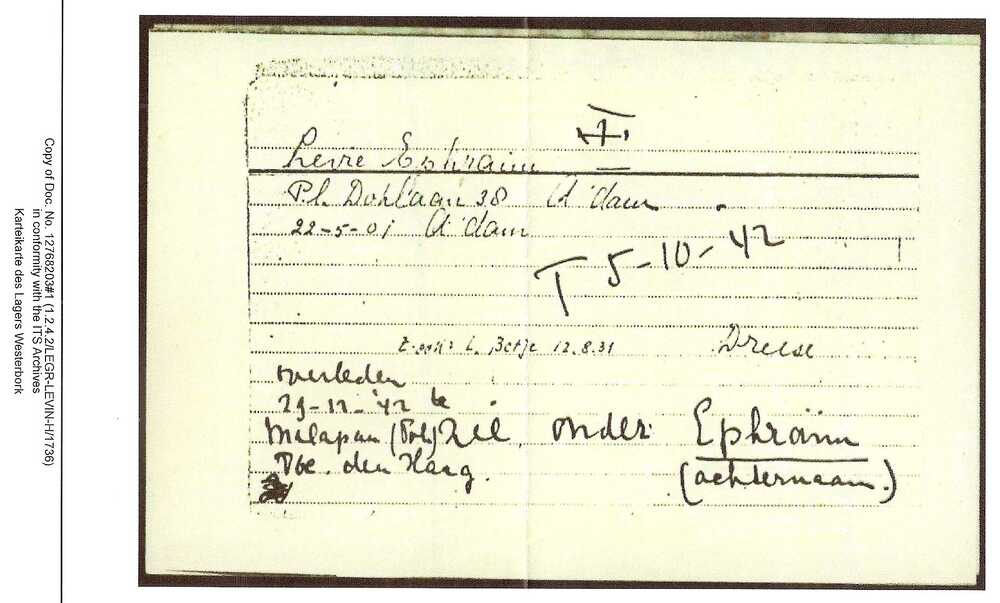 Copy of Doc. No. 12768203#1 (1.2.4.2/LEGR-LEVIN-H/1736)
in conformity with the ITS Archives
Karteikarte des Lagers Westerbork
Levie Ephraim
P.L. Dohlaan 38 A'dam
22-5-01 A'dam
T 5-10-42
L. Betje 12.8.31
overleden
29-12-'42 te
Malapan (Pol) Zie onder Ephraïm
den Haag. (achternaam.)